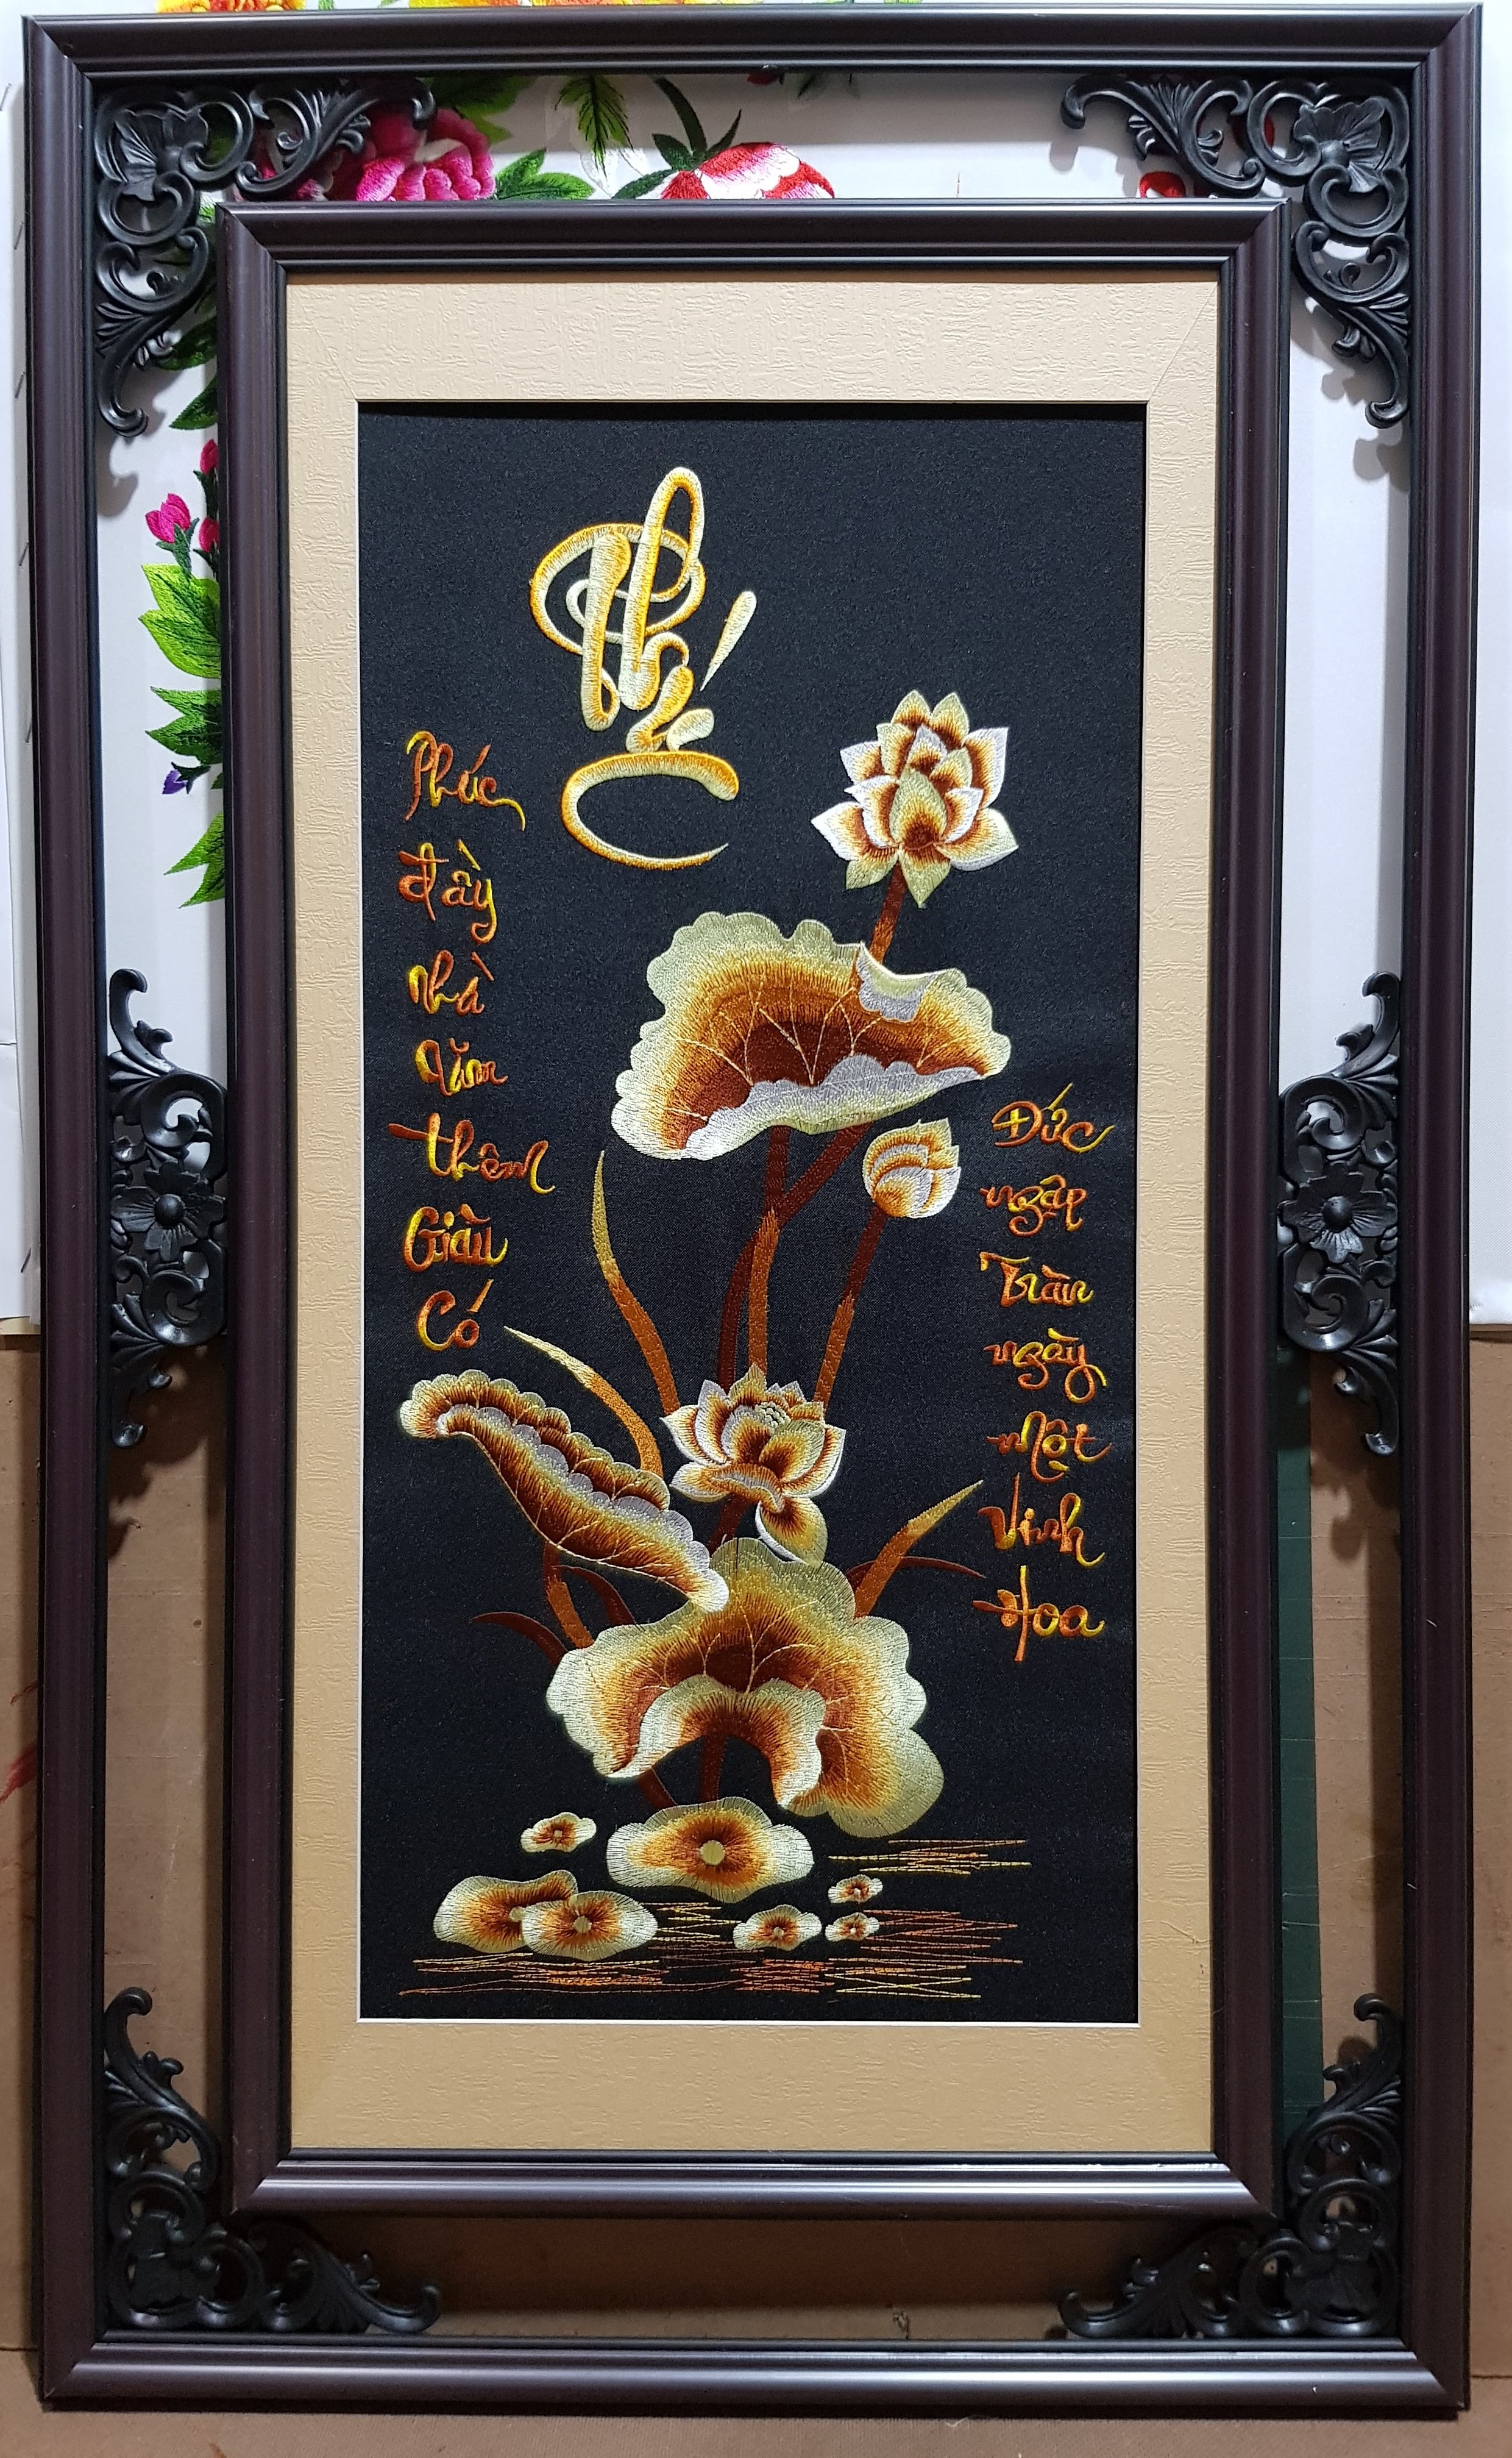 Phúc
Phúc
đầy
nhà
Năm
thêm
Giàu
Có
Đức
ngập
Tràn
ngày
Một
Vinh
Hoa